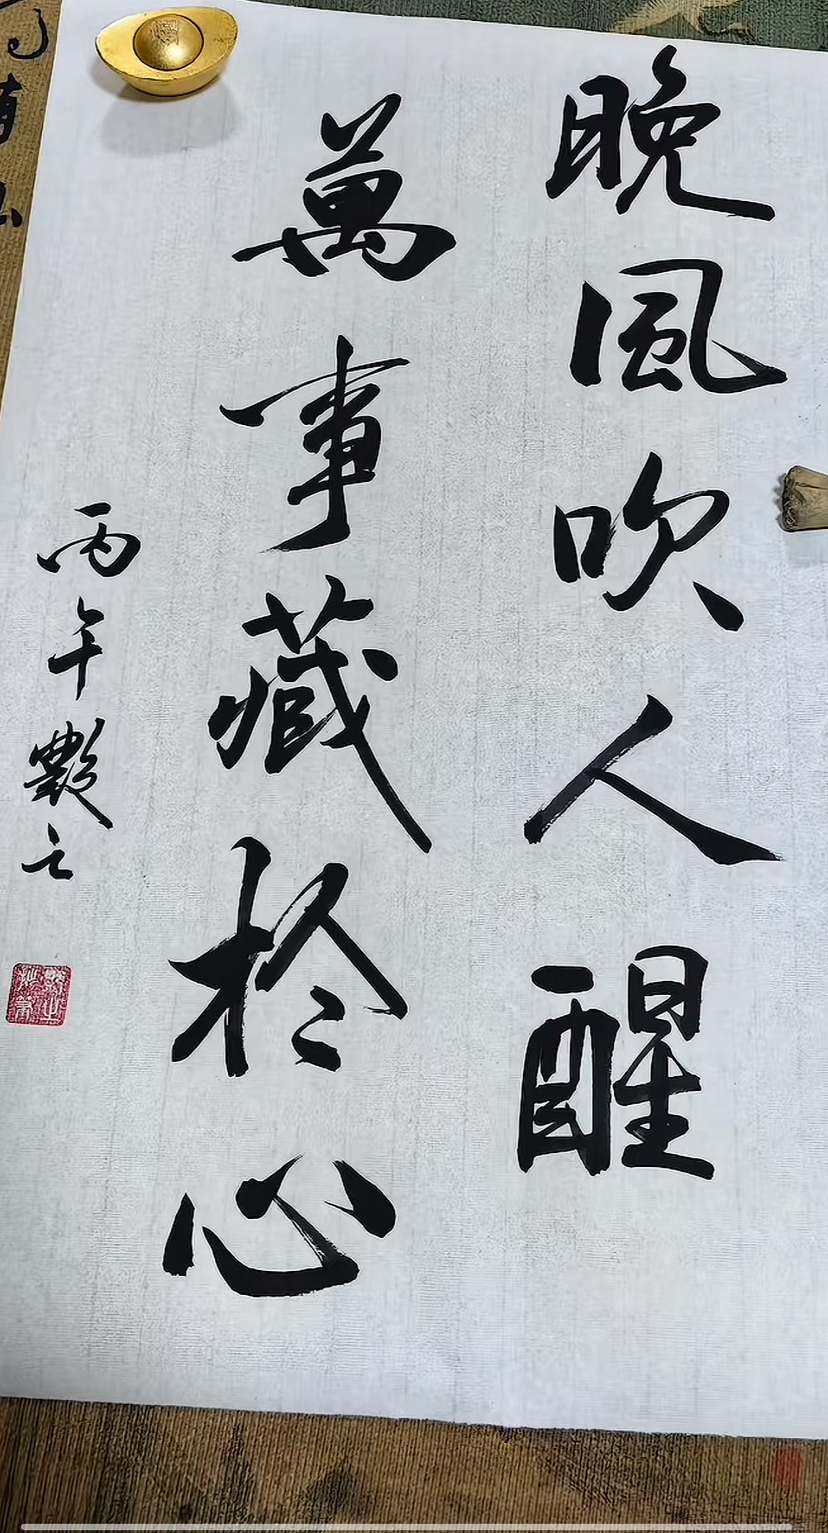 晚風吹人醒
萬事藏於心
丙午艷之